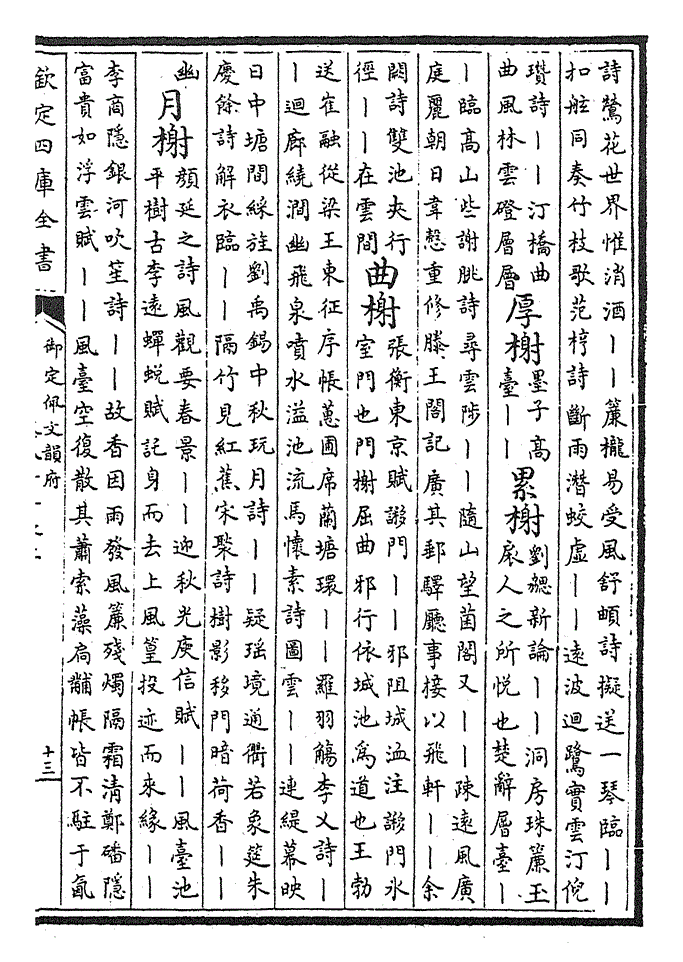 詩鶯花世界惟消酒丨丨簾櫳易受風舒頔詩擬送一琴臨丨丨
扣舷同奏竹枝歌范梈詩斷雨潛蛟虛丨丨遠波迴鷺實雲汀倪
瓚詩丨丨汀橋曲
曲風林雲磴層層
厚榭
墨子高
臺丨丨
累榭
劉勰新論丨丨洞房珠簾玉
扆人之所悦也楚辭層臺丨
丨臨高山些謝朓詩尋雲陟丨丨隨山望菌閣又丨丨疎遠風廣
庭麗朝日韋慤重修滕王閣記廣其郵驛廳事接以飛軒丨丨余
闕詩雙池夾行
徑丨丨在雲間
曲榭
張衡東京賦謻門丨丨邪阻城洫注謻門氷
室門也門榭屈曲邪行依城池爲道也王勃
送崔融從梁王東征序帳蕙圃席蘭塘環丨丨羅羽觴李乂詩丨
丨迴廊繞澗幽飛泉噴水溢池流馬懷素詩圖雲丨丨連緹幕映
日中塘間綵旌劉禹錫中秋玩月詩丨丨疑瑶境通衢若象筵朱
慶餘詩解衣臨丨丨隔竹見紅蕉宋褧詩樹影移門暗荷香丨丨
幽
月榭
顔延之詩風觀要春景丨丨迎秋光庾信賦丨丨風臺池
平樹古李遠蟬蛻賦託身而去上風篁投迹而來緣丨丨
李商隱銀河吹笙詩丨丨故香因雨發風簾殘燭隔霜清鄭磻隱
富貴如浮雲賦丨丨風臺空復散其蕭索藻扃黼帳皆不駐于氤
欽定四庫全書
御定佩文韻府
十三